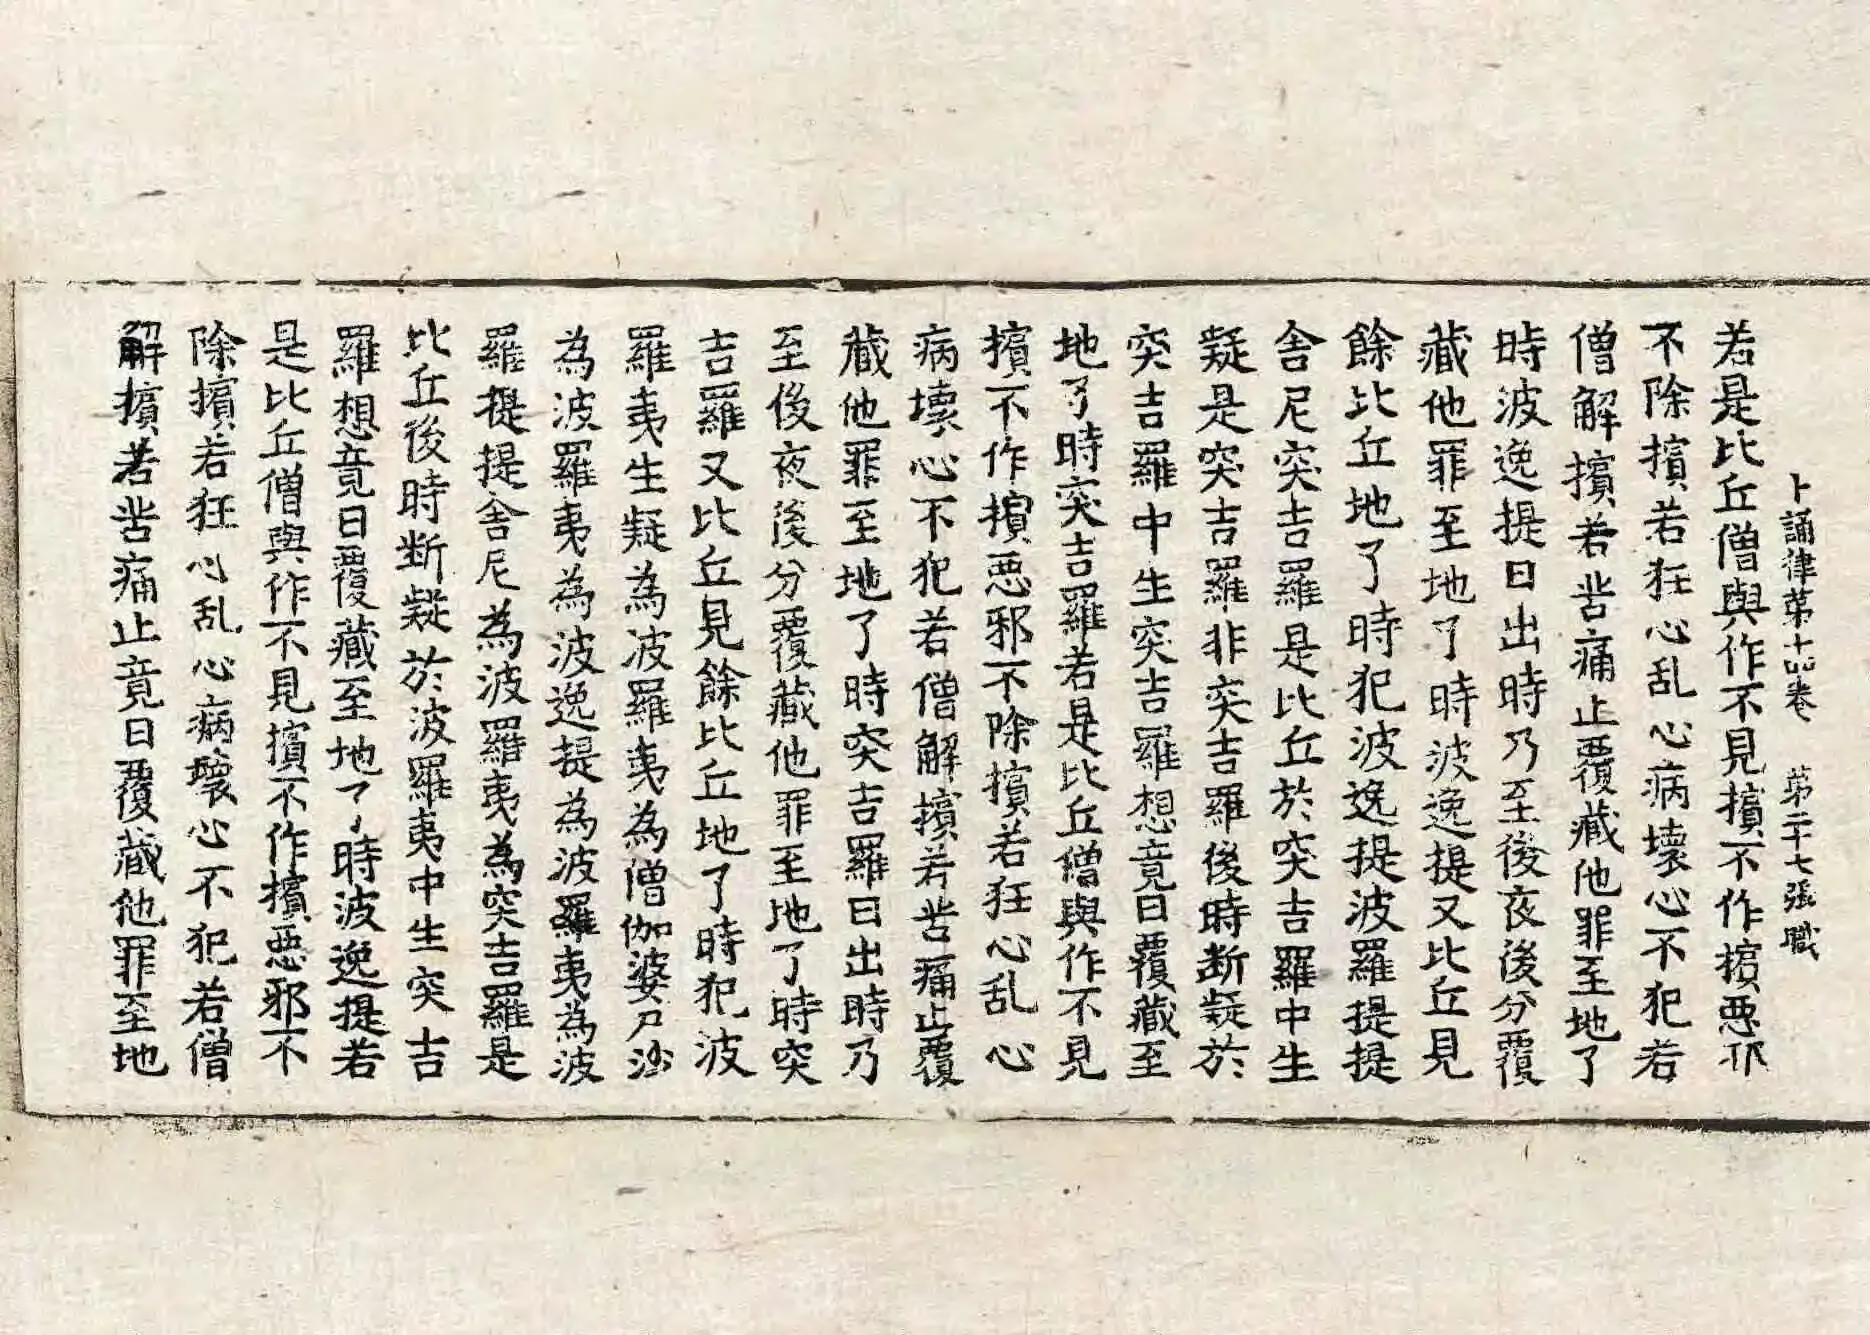 十誦律第十四卷 第二十七張 職
若是比丘僧與作不見擯不作擯惡邪
不除擯若狂心乱心病壞心不犯若
僧解擯若苦痛止覆藏他罪至地了
時波逸提日出時乃至後夜後分覆
藏他罪至地了時波逸提又比丘見
餘比丘地了時犯波逸提波羅提提
舍尼突吉羅是比丘於突吉羅中生
疑是突吉羅非突吉羅後時断疑於
突吉羅中生突吉羅想竟日覆藏至
地了時突吉羅若是比丘僧與作不見
擯不作擯惡邪不除擯若狂心乱心
病壞心不犯若僧解擯若苦痛止覆
藏他罪至地了時突吉羅日出時乃
至後夜後分覆藏他罪至地了時突
吉羅又比丘見餘比丘地了時犯波
羅夷生疑為波羅夷為僧伽婆尸沙
為波羅夷為波逸提為波羅夷為波
羅提提舍尼為波羅夷為突吉羅是
比丘後時断疑於波羅夷中生突吉
羅想竟日覆藏至地了時波逸提若
是比丘僧與作不見擯不作擯惡邪不
除擯若狂心乱心病壞心不犯若僧
解擯若苦痛止竟日覆藏他罪至地